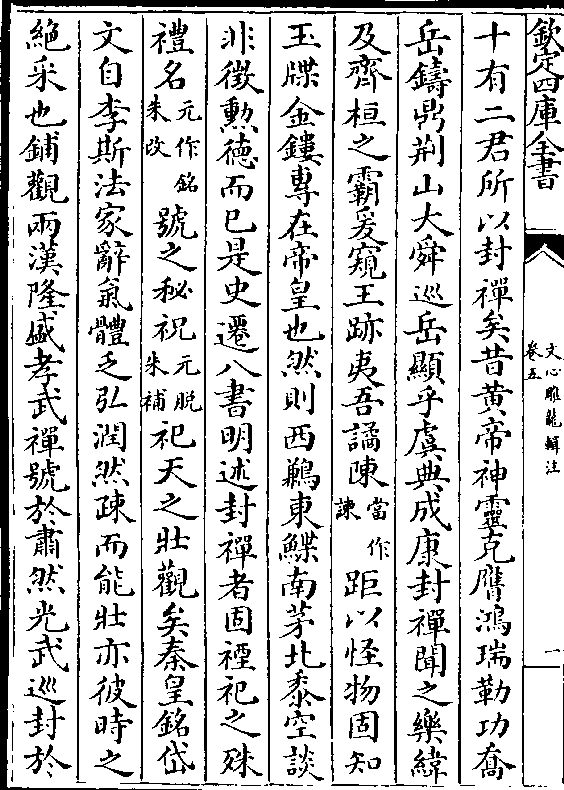 欽定四庫全書
文心雕龍輯注
卷五
一
十有二君所以封禪矣昔黄帝神靈克膺鴻瑞勒功喬
岳鑄鼎荆山大舜巡岳顯乎虞典成康封禪聞之樂緯
及齊桓之霸爰窺王跡夷吾譎陳當作諫距以怪物固知
玉牒金鏤專在帝皇也然則西鶼東鰈南茅北黍空談
非徵勲德而已是史遷八書明述封禪者固禋祀之殊
禮名元作銘朱改號之秘祝元脱朱補祀天之壯觀矣秦皇銘岱
文自李斯法家辭氣體乏弘潤然疎而能壯亦彼時之
絶采也鋪觀兩漢隆盛孝武禪號於肅然光武巡封於